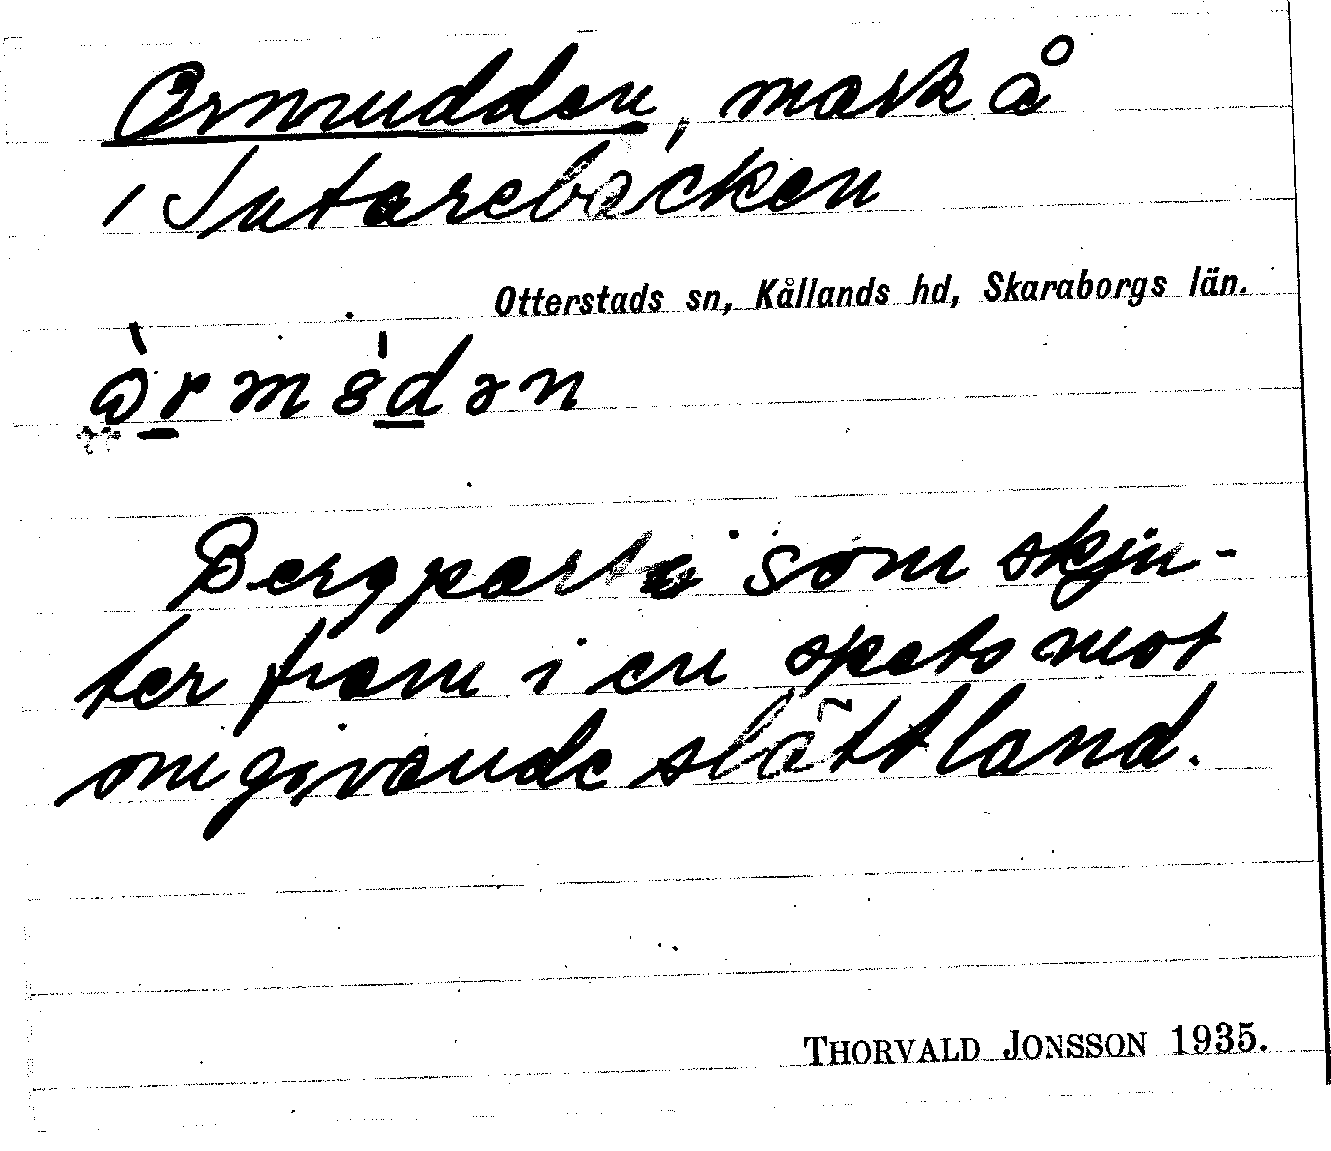 Ormudden, mark å
1 Intarebäcken
Otterstads sn, Kållands hd, Skaraborgs län.
Bergparti som skju-
ter fram i en spets mot
omgivande slättland.
THORVALD JONSSON 1935.